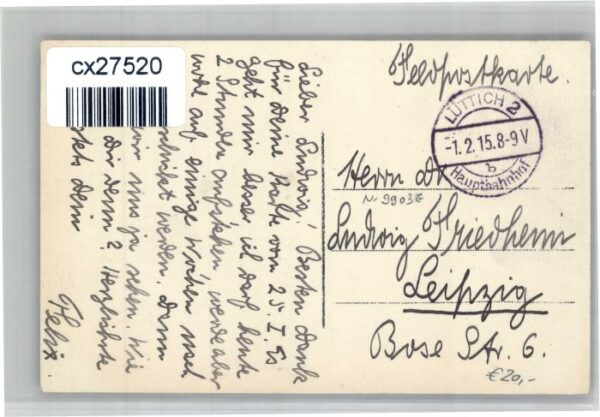 cx27520
Feldpostkarte.
LÜTTICH 2
-1.2.15.8-9V
b
Hauptbahnhof
Herrn Dr
Nr 99036
Ludwig Friedheim
Leipzig
Bose Str. 6.
€20,-
Lieber Ludwig! Besten Dank
für deine Karte vom 25. I. Es
geht mir besser ich darf heute
2 Stunden aufstehen werde aber
wohl auf einige Wochen nach
schickt werden. Dann
wir uns ja sehen. Wie
dir denn? Herzlichste
dein
Felix.